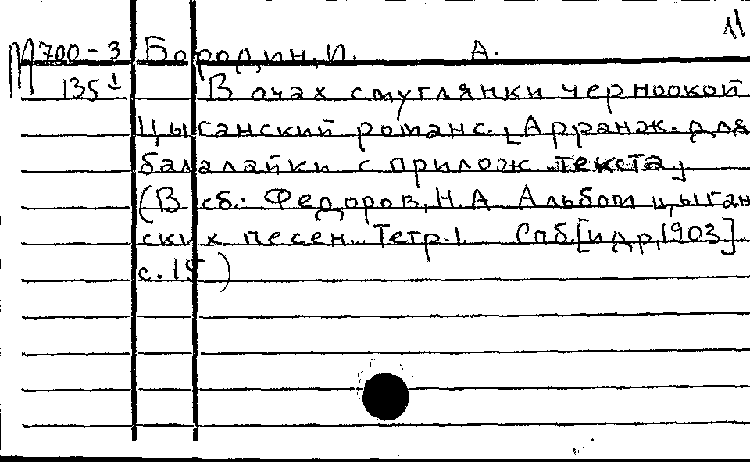 11
М700-3 Бородин, И. А.
135¹ В очах смуглянки черноокой
Цыганский романс. [Арранж. для
балалайки с прилож. текста]
(В сб.: Федоров, Н.А Альбом цыган
ских песен. Тетр.1. Спб.[и др, 1903]
с. 15)